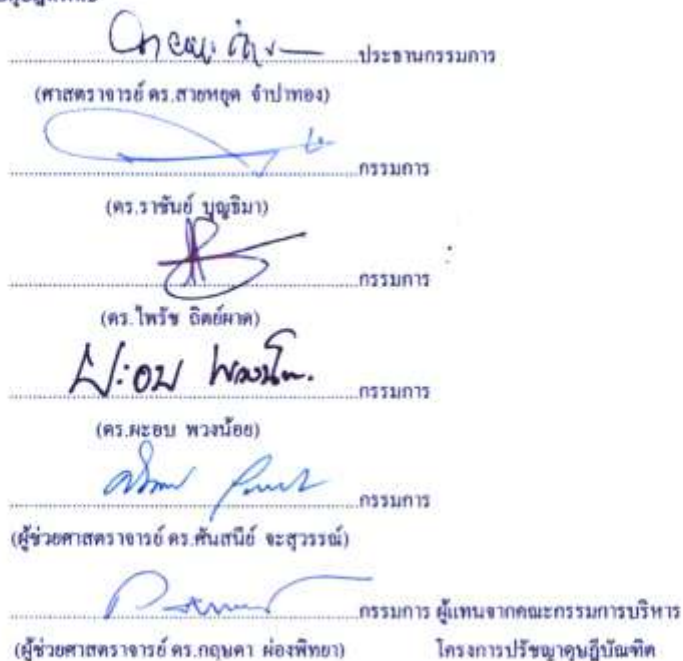 ประธานกรรมการ
(ศาสตราจารย์ ดร.สายหยุด จำปาทอง)
กรรมการ
(ดร.ราชันย์ บุญธิมา)
กรรมการ
(ดร.ไพรัช ถิตย์ผาด)
ผะอบ พวงน้อย
กรรมการ
(ดร.ผะอบ พวงน้อย)
กรรมการ
(ผู้ช่วยศาสตราจารย์ ดร.ศันสนีย์ จะสุวรรณ์)
กรรมการ ผู้แทนจากคณะกรรมการบริหาร
(ผู้ช่วยศาสตราจารย์ ดร.กฤษดา ผ่องพิทยา) โครงการปรัชญาดุษฎีบัณฑิต